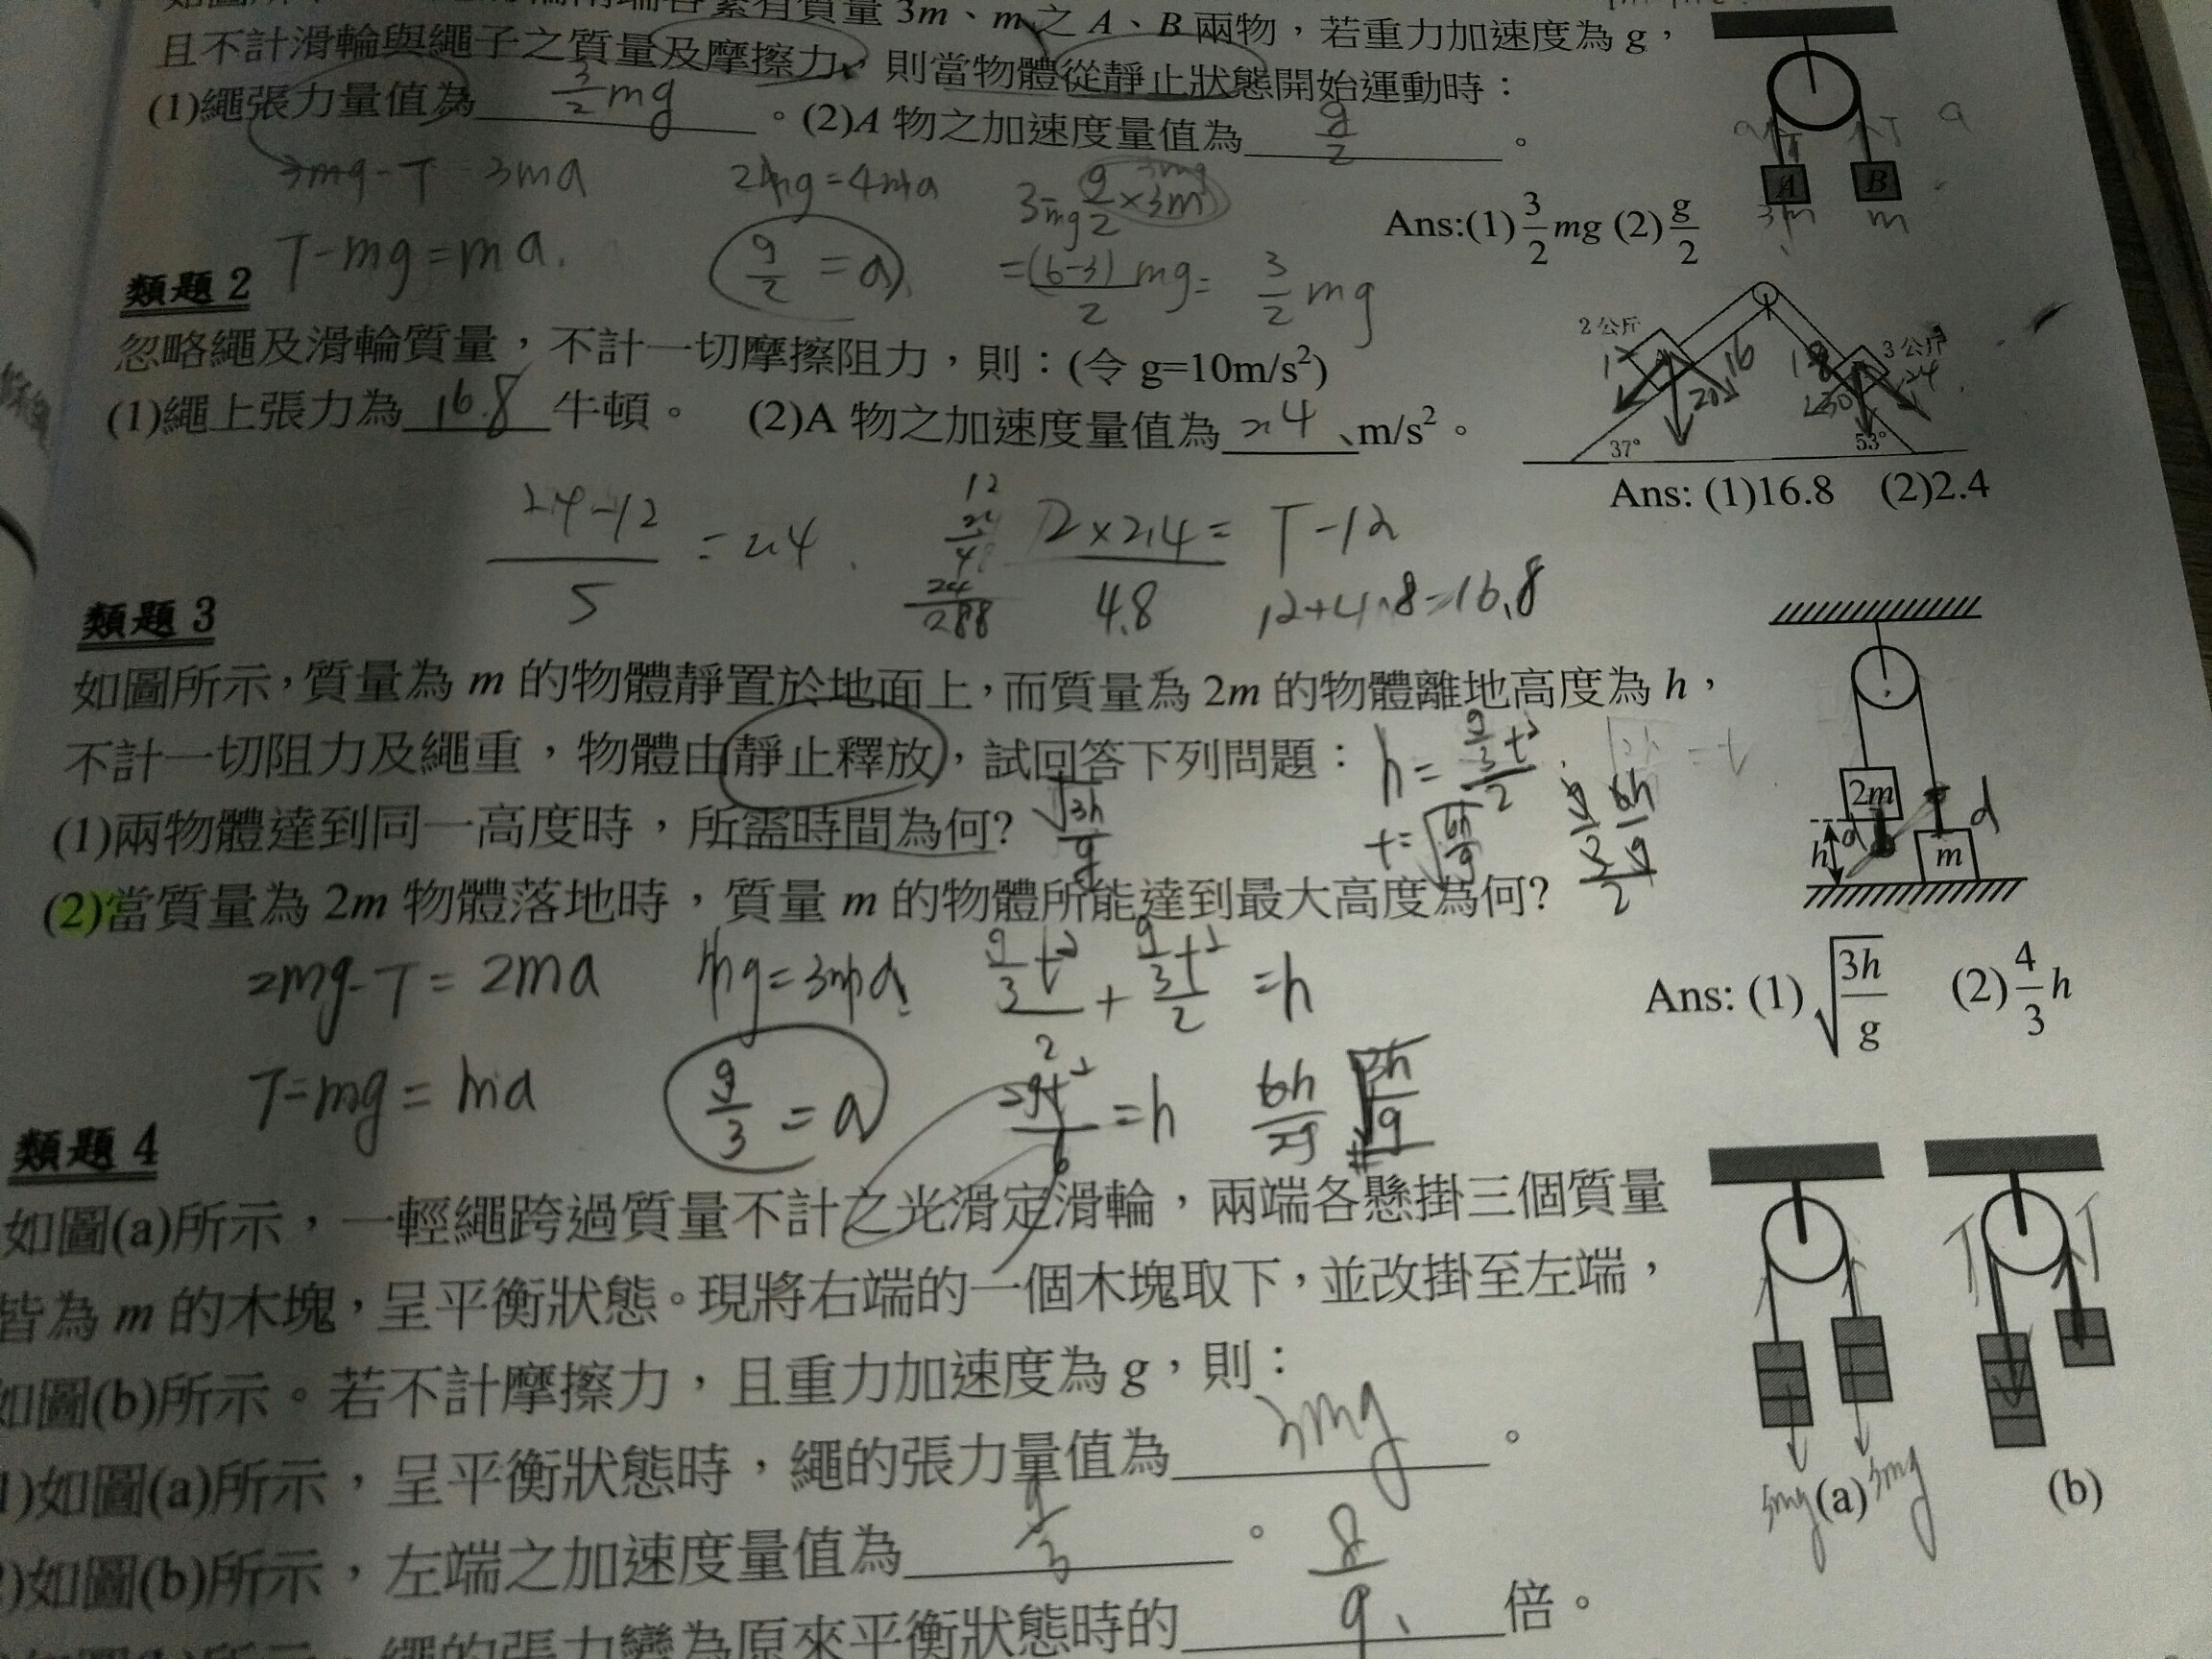 質量 3m、m 之 A、B 兩物，若重力加速度為 g，
且不計滑輪與繩子之質量及摩擦力，則當物體從靜止狀態開始運動時：
(1)繩張力量值為 3/2 mg 。(2)A 物之加速度量值為 g/2 。
3mg-T 3ma
2mg=4ma
T-mg=ma.
g/2 = a
=(6-3)/2 mg= 3/2 mg
A
B
3m
m
Ans:(1) 3/2 mg (2) g/2
類題 2
忽略繩及滑輪質量，不計一切摩擦阻力，則：(令 g=10m/s²)
(1)繩上張力為 16.8 牛頓。 (2)A 物之加速度量值為 2.4 m/s²。
2 公斤
3 公斤
16
18
37°
53°
Ans: (1)16.8 (2)2.4
24-12/5 = 2.4
2×2.4= T-12
4.8
12+4.8=16.8
類題 3
如圖所示，質量為 m 的物體靜置於地面上，而質量為 2m 的物體離地高度為 h，
不計一切阻力及繩重，物體由靜止釋放，試回答下列問題：
(1)兩物體達到同一高度時，所需時間為何? √3h/g
(2)當質量為 2m 物體落地時，質量 m 的物體所能達到最大高度為何?
2m
h
m
d
Ans: (1) √3h/g (2) 4/3 h
2mg-T=2ma
mg=3ma
T-mg=ma
g/3 = a
類題 4
如圖(a)所示，一輕繩跨過質量不計之光滑定滑輪，兩端各懸掛三個質量
皆為 m 的木塊，呈平衡狀態。現將右端的一個木塊取下，並改掛至左端，
如圖(b)所示。若不計摩擦力，且重力加速度為 g，則：
1)如圖(a)所示，呈平衡狀態時，繩的張力量值為 3mg 。
)如圖(b)所示，左端之加速度量值為 g/3 。
繩的張力變為原來平衡狀態時的 8/9 倍。
T
T
3mg
(a)
3mg
(b)